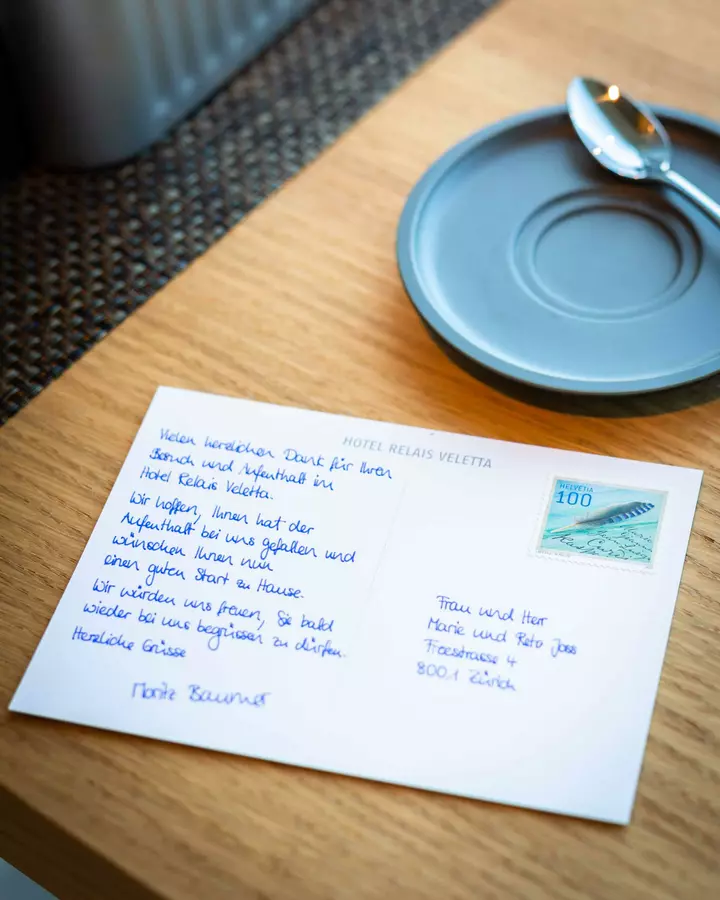 HOTEL RELAIS VELETTA
Vielen herzlichen Dank für Ihren
Besuch und Aufenthalt im
Hotel Relais Veletta.
Wir hoffen, Ihnen hat der
Aufenthalt bei uns gefallen und
wünschen Ihnen nun
einen guten Start zu Hause.
Wir würden uns freuen, Sie bald
wieder bei uns begrüssen zu dürfen.
Herzliche Grüsse
Moritz
HELVETIA
100
Frau und Herr
Marie und Reto Joss
4
8001 Zürich